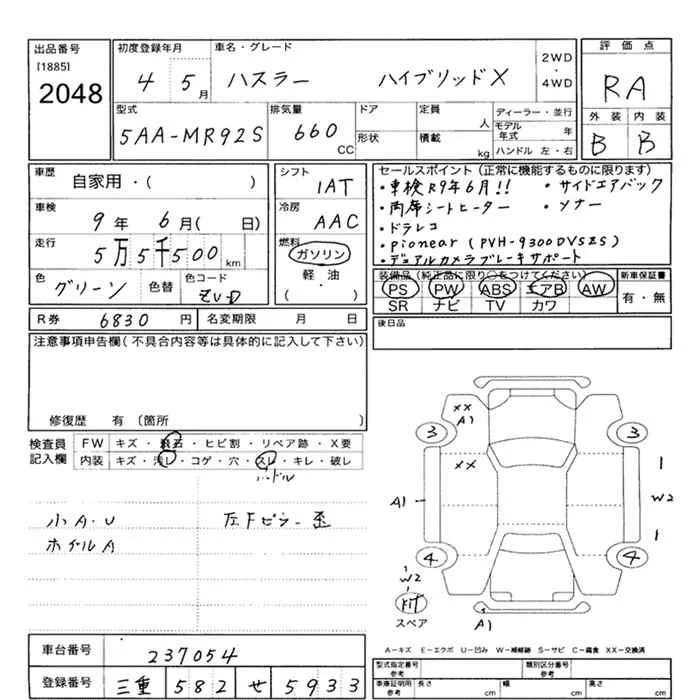 出品番号
[1885]
2048
初度登録年月
4 5月
車名・グレード
ハスラー ハイブリッドX
2WD
・
4WD
評価点
RA
外装 内装
B B
型式
5AA-MR92S
排気量
660 CC
ドア
形状
定員 人
積載 kg
ディーラー・並行
モデル年式 年
ハンドル 左・右
車歴
自家用・( )
車検
9年 6月( 日)
走行
5万5千500km
色
グリーン
色替
色コード
ZVD
シフト
IAT
冷房
AAC
燃料
ガソリン
軽・油
( )
セールスポイント(正常に機能するものに限ります)
・車検R9年6月!! ・サイドエアバック
・両席シートヒーター ・ソナー
・ドラレコ
・pionear(PVH-9300DVSZS)
・デュアルカメラブレーキサポート
装備品(純正品に限り○をつけてください)
PS PW ABS エアB AW
SR ナビ TV カワ
新車保証書
有・無
R券 6830円
名変期限 月 日
後日品
注意事項申告欄(不具合内容等は具体的に記入して下さい)
修復歴 有〔箇所 〕
検査員
記入欄
FW キズ・飛石・ヒビ割・リペア跡・X要
内装 キズ・汚レ・コゲ・穴・スレ・キレ・破レ
ハンドル
小A・U
ホイルA
左Fピラー歪
XX
A1
3
3
XX
A1
1
W2
1
4
4
1
W2
スペア
A1
A-キズ E-エクボ U-凹み W-補修跡 S-サビ C-腐食 XX-交換済
車台番号
237054
登録番号
三重 582 せ 5933
型式指定番号
参考
類別区分番号
参考
車庫証明用
参考
長さ cm
幅 cm
高さ cm